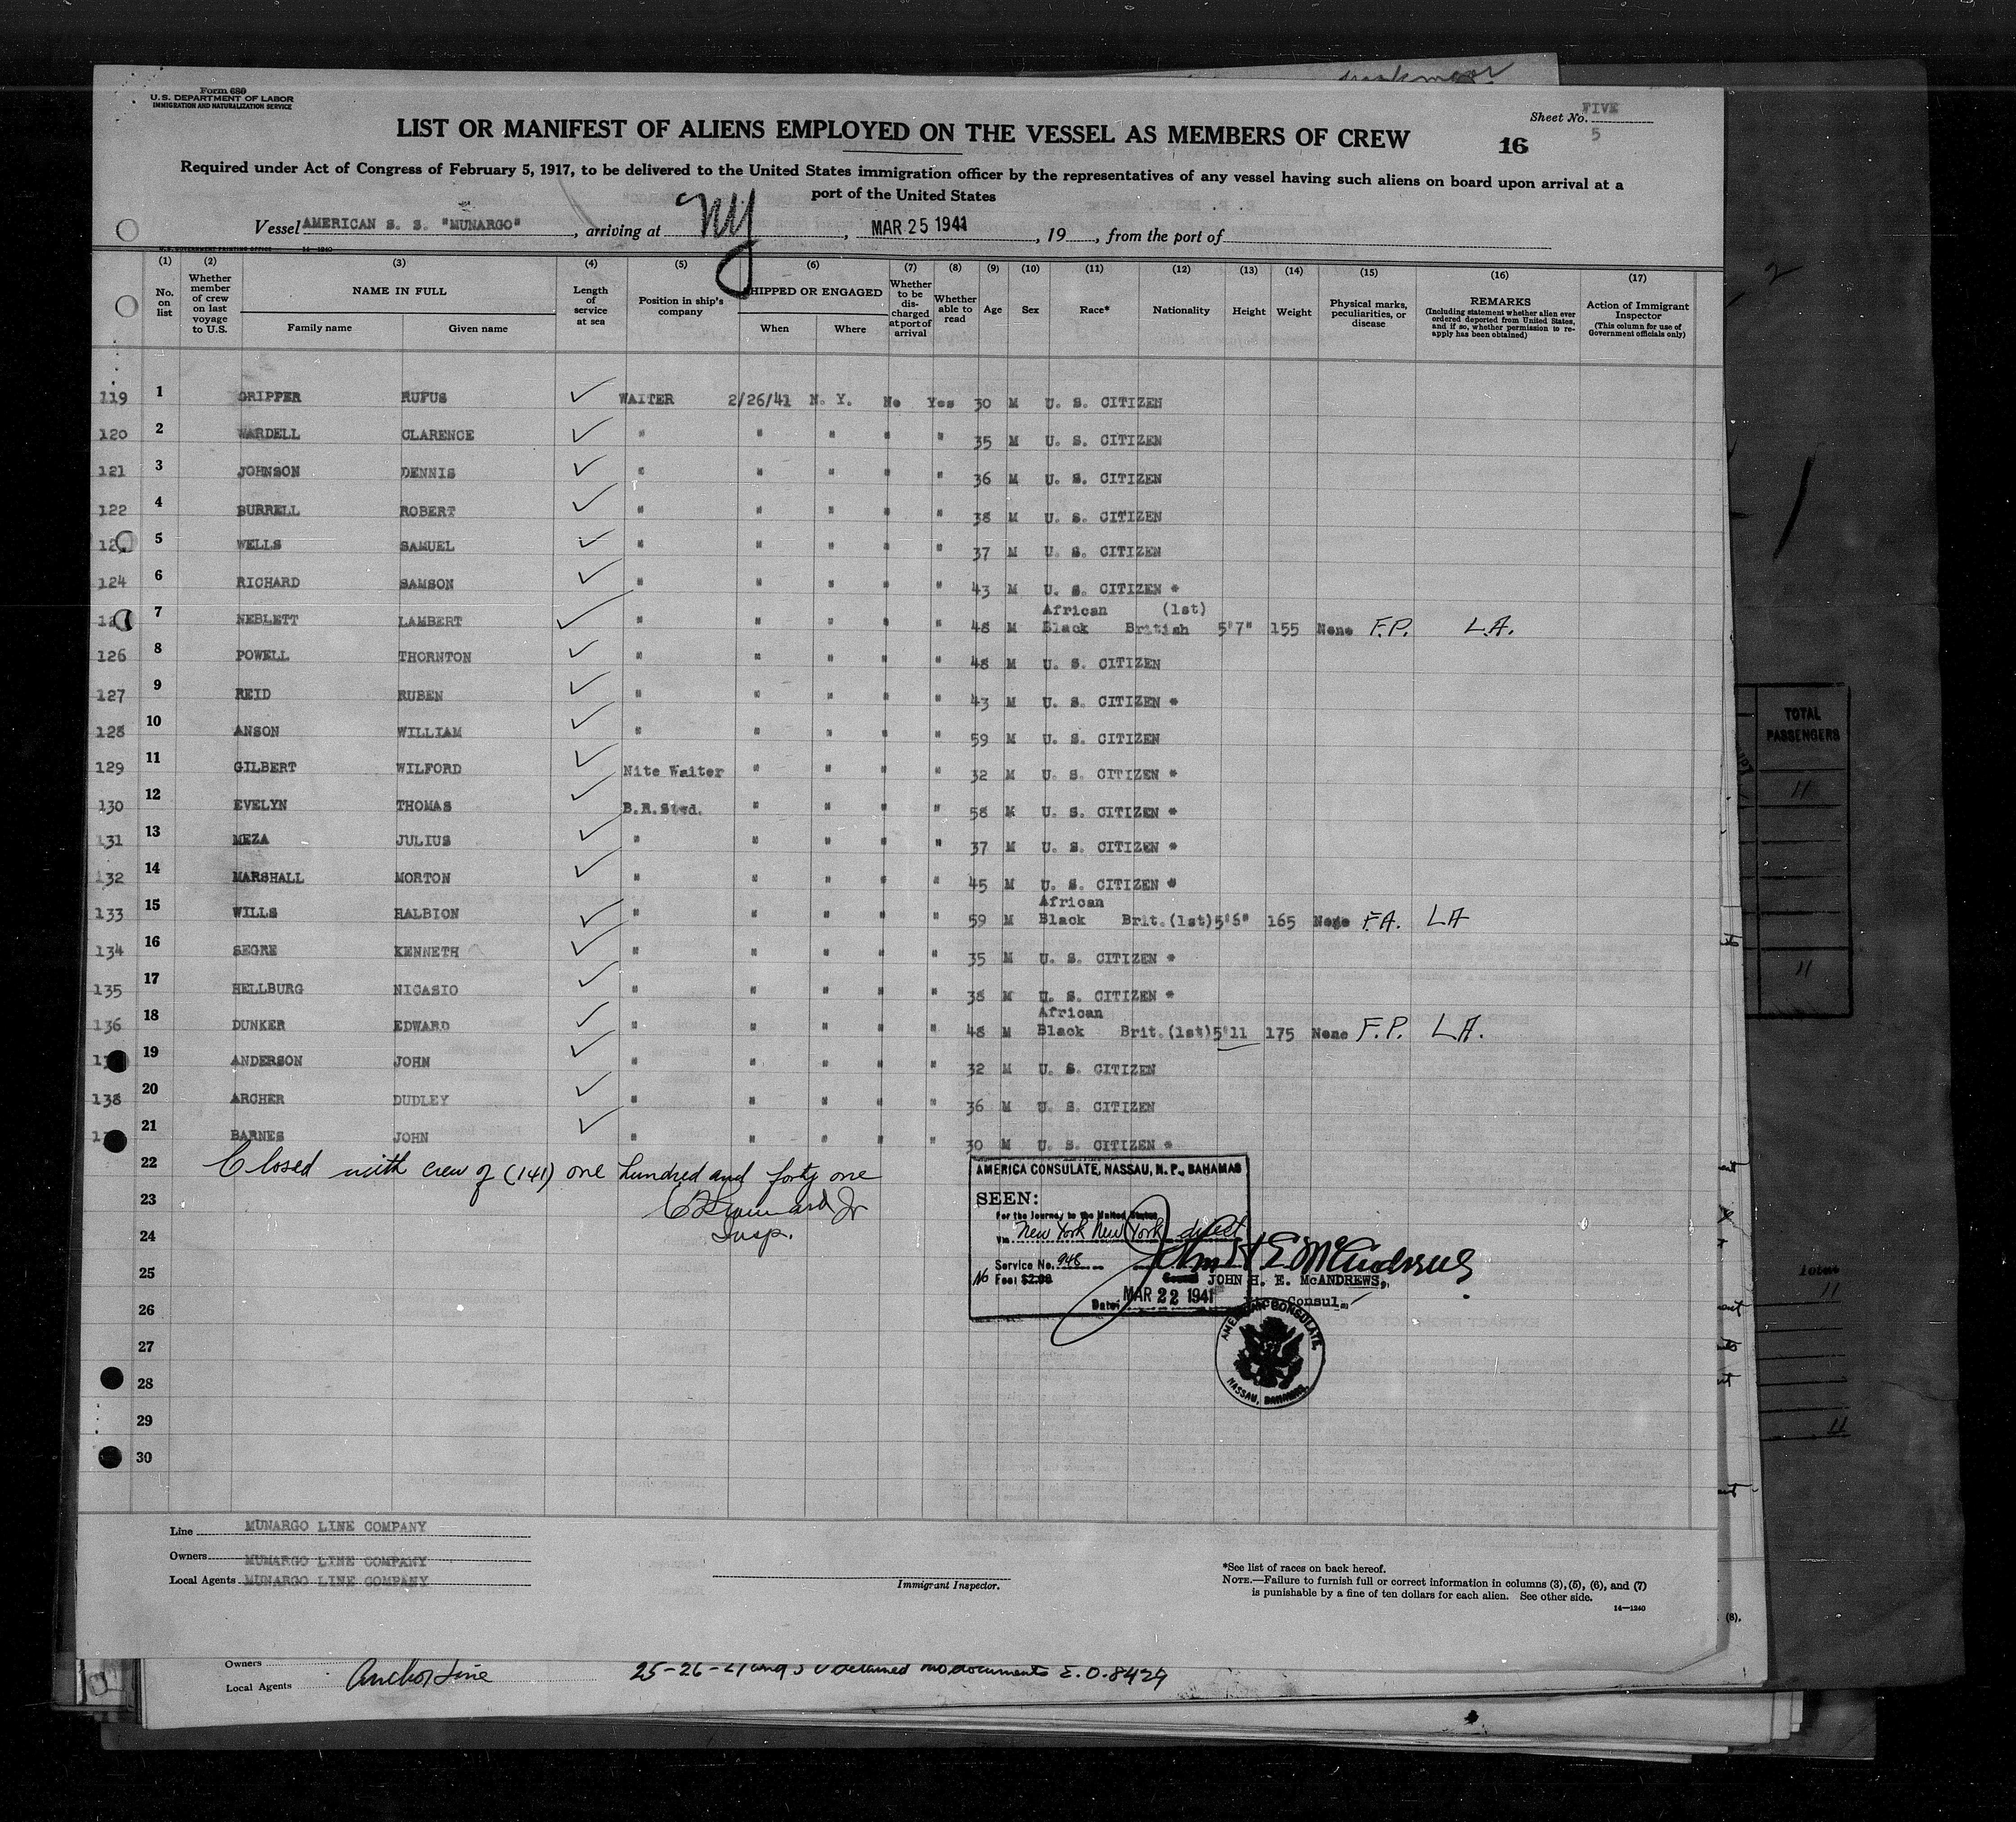 Form 680
U.S. DEPARTMENT OF LABOR
IMMIGRATION AND NATURALIZATION SERVICE
Sheet No. FIVE
5
LIST OR MANIFEST OF ALIENS EMPLOYED ON THE VESSEL AS MEMBERS OF CREW
16
Required under Act of Congress of February 5, 1917, to be delivered to the United States immigration officer by the representatives of any vessel having such aliens on board upon arrival at a
port of the United States
Vessel AMERICAN S. S. "MUNARGO", arriving at NY, MAR 25 1941, 19, from the port of
U.S. GOVERNMENT PRINTING OFFICE 14—1240
(1) (2) (3) (4) (5) (6) (7) (8) (9) (10) (11) (12) (13) (14) (15) (16) (17)
No. on list
Whether member of crew on last voyage to U.S.
NAME IN FULL
Family name Given name
Length of service at sea
Position in ship's company
SHIPPED OR ENGAGED
When Where
Whether to be discharged at port of arrival
Whether able to read
Age Sex Race* Nationality Height Weight
Physical marks, peculiarities, or disease
REMARKS
(Including statement whether alien ever ordered deported from United States, and if so, whether permission to re-apply has been obtained)
Action of Immigrant Inspector
(This column for use of Government officials only)
119 1 GRIPPER RUFUS ✓ WAITER 2/26/41 N. Y. No Yes 30 M U. S. CITIZEN
120 2 WARDELL CLARENCE ✓ " " " " " 35 M U. S. CITIZEN
121 3 JOHNSON DENNIS ✓ " " " " " 36 M U. S. CITIZEN
122 4 BURRELL ROBERT ✓ " " " " " 38 M U. S. CITIZEN
12 5 WELLS SAMUEL ✓ " " " " " 37 M U. S. CITIZEN
124 6 RICHARD SAMSON ✓ " " " " " 43 M U. S. CITIZEN *
African (1st)
12 7 NEBLETT LAMBERT ✓ " " " " " 48 M Black British 5'7" 155 None F.P. L.A.
126 8 POWELL THORNTON ✓ " " " " " 48 M U. S. CITIZEN
127 9 REID RUBEN ✓ " " " " " 43 M U. S. CITIZEN *
128 10 ANSON WILLIAM ✓ " " " " " 59 M U. S. CITIZEN
129 11 GILBERT WILFORD ✓ Nite Waiter " " " " 32 M U. S. CITIZEN *
130 12 EVELYN THOMAS ✓ B.R.Stwd. " " " " 58 M U. S. CITIZEN *
131 13 MEZA JULIUS ✓ " " " " " 37 M U. S. CITIZEN *
132 14 MARSHALL MORTON ✓ " " " " " 45 M U. S. CITIZEN *
African
133 15 WILLS HALBION ✓ " " " " " 59 M Black Brit.(1st) 5'6" 165 None F.A. LA
134 16 SEGRE KENNETH ✓ " " " " " 35 M U. S. CITIZEN *
135 17 HELLBURG NICASIO ✓ " " " " " 38 M U. S. CITIZEN *
African
136 18 DUNKER EDWARD ✓ " " " " " 48 M Black Brit.(1st) 5'11 175 None F.P. L.A.
1 19 ANDERSON JOHN ✓ " " " " " 32 M U. S. CITIZEN
138 20 ARCHER DUDLEY ✓ " " " " " 36 M U. S. CITIZEN
1 21 BARNES JOHN ✓ " " " " " 30 M U. S. CITIZEN *
22 Closed with crew of (141) one hundred and forty one
23
Insp.
24
25
26
27
28
29
30
AMERICA CONSULATE, NASSAU, N. P., BAHAMAS
SEEN:
For the Journey to the United States
Via New York New York direct
Service No. 948
No Fee: $2.00
John H E McAndrews
JOHN H. E. McANDREWS,
Vice Consul.
Date: MAR 22 1941
AMERICAN CONSULATE,
NASSAU, BAHAMAS.
Line MUNARGO LINE COMPANY
Owners MUNARGO LINE COMPANY
Local Agents MUNARGO LINE COMPANY
Immigrant Inspector.
*See list of races on back hereof.
NOTE.—Failure to furnish full or correct information in columns (3), (5), (6), and (7)
is punishable by a fine of ten dollars for each alien. See other side.
14—1240
(8).
Owners
Local Agents Anchor Line
25-26-27 and 30 detained no documents E.O. 8429
TOTAL
PASSENGERS
11
11
Total
11
11